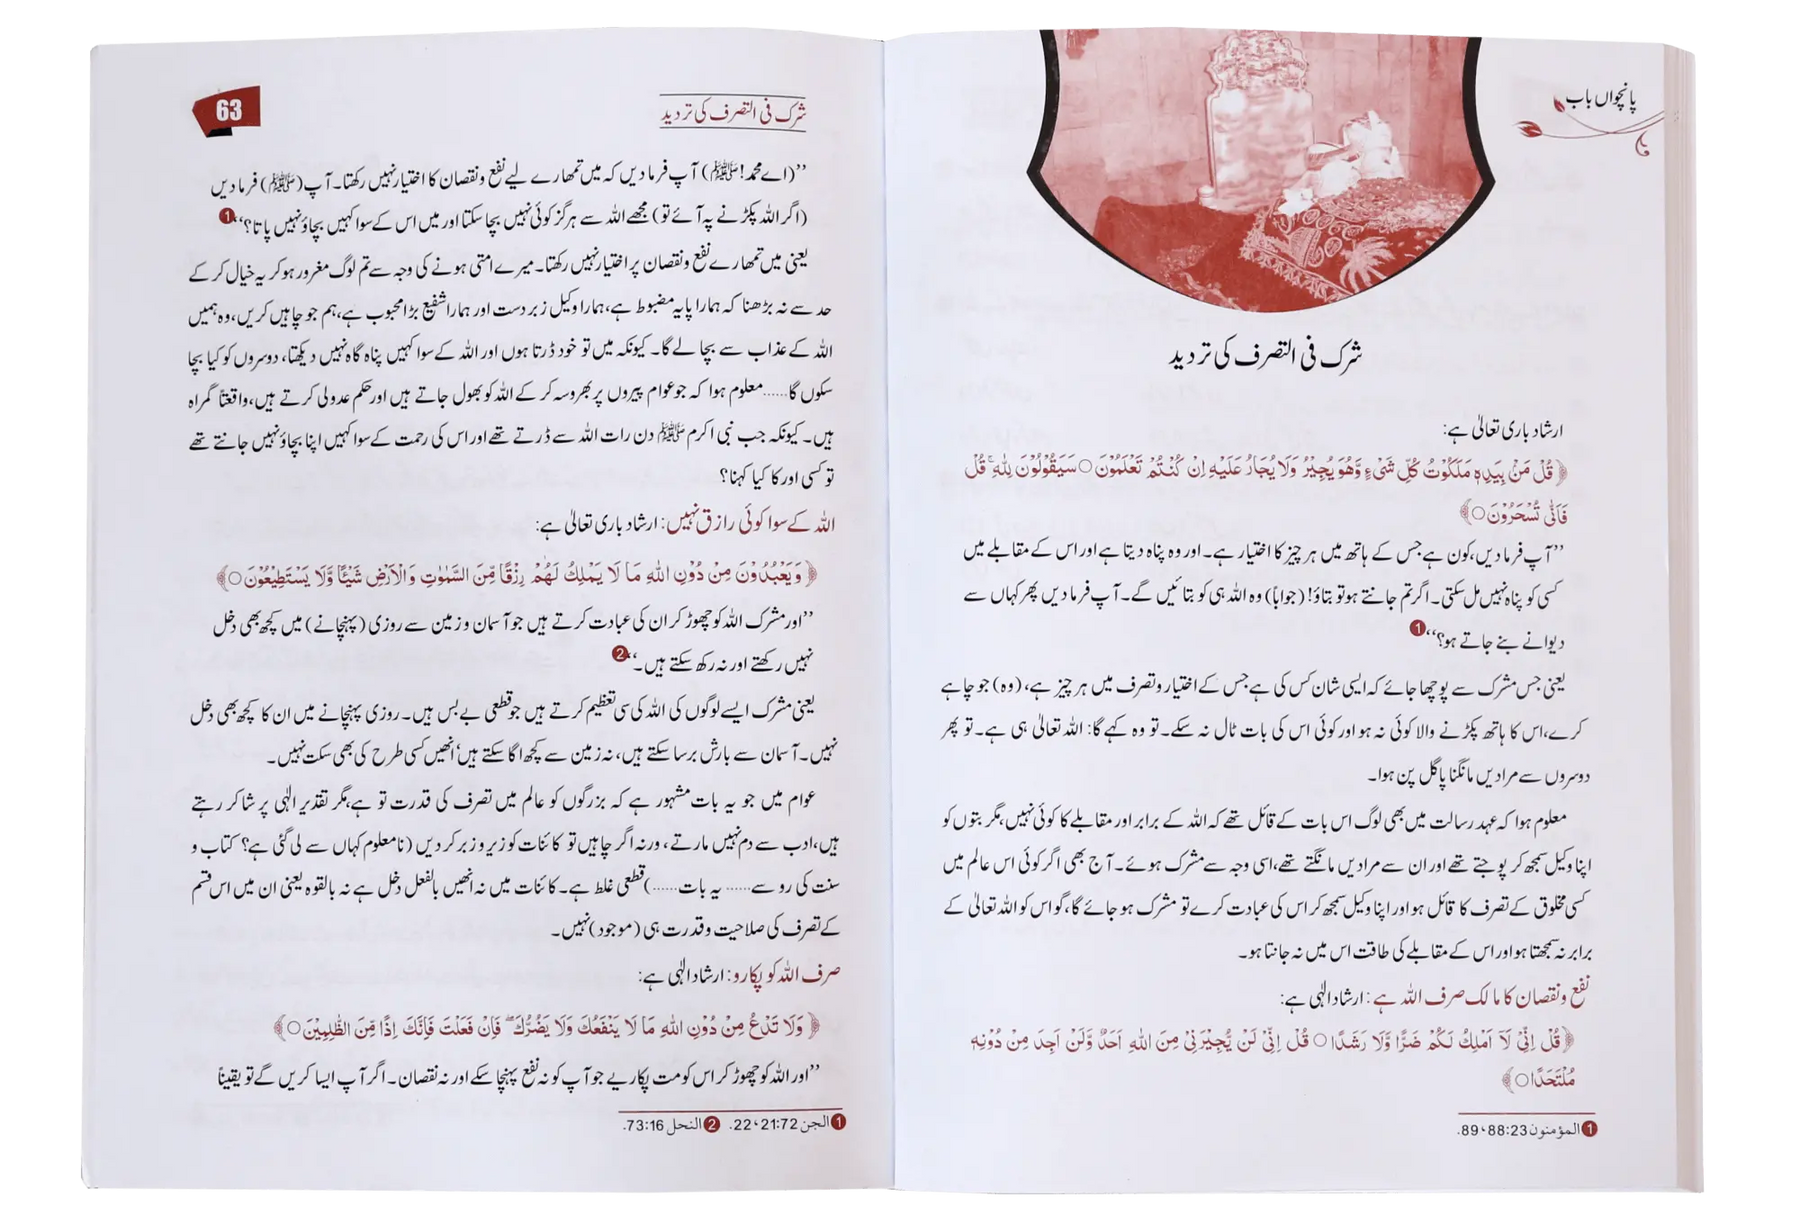 پانچواں باب
شرک فی التصرف کی تردید
ارشاد باری تعالیٰ ہے:
﴿قُلْ مَنْۢ بِيَدِهٖ مَلَكُوْتُ كُلِّ شَيْءٍ وَّهُوَ يُجِيْرُ وَلَا يُجَارُ عَلَيْهِ اِنْ كُنْتُمْ تَعْلَمُوْنَ○ سَيَقُوْلُوْنَ لِلّٰهِ ۚ قُلْ
فَاَنّٰى تُسْحَرُوْنَ○﴾
’’آپ فرما دیں، کون ہے جس کے ہاتھ میں ہر چیز کا اختیار ہے۔ اور وہ پناہ دیتا ہے اور اس کے مقابلے میں
کسی کو پناہ نہیں مل سکتی۔ اگر تم جانتے ہو تو بتاؤ! (جواباً) وہ اللہ ہی کو بتائیں گے۔ آپ فرما دیں پھر کہاں سے
دیوانے بنے جاتے ہو؟‘‘ 1
یعنی جس مشرک سے پوچھا جائے کہ ایسی شان کس کی ہے جس کے اختیار و تصرف میں ہر چیز ہے، (وہ) جو چاہے
کرے، اس کا ہاتھ پکڑنے والا کوئی نہ ہو اور کوئی اس کی بات ٹال نہ سکے۔ تو وہ کہے گا: اللہ تعالیٰ ہی ہے۔ تو پھر
دوسروں سے مرادیں مانگنا پاگل پن ہوا۔
معلوم ہوا کہ عہد رسالت میں بھی لوگ اس بات کے قائل تھے کہ اللہ کے برابر اور مقابلے کا کوئی نہیں، مگر بتوں کو
اپنا وکیل سمجھ کر پوجتے تھے اور ان سے مرادیں مانگتے تھے، اسی وجہ سے مشرک ہوئے۔ آج بھی اگر کوئی اس عالم میں
کسی مخلوق کے تصرف کا قائل ہو اور اپنا وکیل سمجھ کر اس کی عبادت کرے تو مشرک ہو جائے گا، گو اس کو اللہ تعالیٰ کے
برابر نہ سمجھتا ہو اور اس کے مقابلے کی طاقت اس میں نہ جانتا ہو۔
نفع و نقصان کا مالک صرف اللہ ہے: ارشاد الٰہی ہے:
﴿قُلْ اِنِّيْ لَاۤ اَمْلِكُ لَكُمْ ضَرًّا وَّلَا رَشَدًا○ قُلْ اِنِّيْ لَنْ يُّجِيْرَنِيْ مِنَ اللّٰهِ اَحَدٌ وَّلَنْ اَجِدَ مِنْ دُوْنِهٖ
مُلْتَحَدًا○﴾
1 المؤمنون 23:88، 89.
شرک فی التصرف کی تردید
63
’’(اے محمد! ﷺ) آپ فرما دیں کہ میں تمھارے لیے نفع و نقصان کا اختیار نہیں رکھتا۔ آپ (ﷺ) فرما دیں
(اگر اللہ پکڑنے پہ آئے تو) مجھے اللہ سے ہرگز کوئی نہیں بچا سکتا اور میں اس کے سوا کہیں بچاؤ نہیں پاتا؟‘‘ 1
یعنی میں تمھارے نفع و نقصان پر اختیار نہیں رکھتا۔ میرے امتی ہونے کی وجہ سے تم لوگ مغرور ہو کر یہ خیال کر کے
حد سے نہ بڑھنا کہ ہمارا پایہ مضبوط ہے، ہمارا وکیل زبردست اور ہمارا شفیع بڑا محبوب ہے، ہم جو چاہیں کریں، وہ ہمیں
اللہ کے عذاب سے بچا لے گا۔ کیونکہ میں تو خود ڈرتا ہوں اور اللہ کے سوا کہیں پناہ گاہ نہیں دیکھتا، دوسروں کو کیا بچا
سکوں گا...... معلوم ہوا کہ جو عوام پیروں پر بھروسہ کر کے اللہ کو بھول جاتے ہیں اور حکم عدولی کرتے ہیں، واقعتاً گمراہ
ہیں۔ کیونکہ جب نبی اکرم ﷺ دن رات اللہ سے ڈرتے تھے اور اس کی رحمت کے سوا کہیں اپنا بچاؤ نہیں جانتے تھے
تو کسی اور کا کیا کہنا؟
اللہ کے سوا کوئی رازق نہیں: ارشاد باری تعالیٰ ہے:
﴿وَيَعْبُدُوْنَ مِنْ دُوْنِ اللّٰهِ مَا لَا يَمْلِكُ لَهُمْ رِزْقًا مِّنَ السَّمٰوٰتِ وَالْاَرْضِ شَيْئًا وَّلَا يَسْتَطِيْعُوْنَ○﴾
’’اور مشرک اللہ کو چھوڑ کر ان کی عبادت کرتے ہیں جو آسمان و زمین سے روزی (پہنچانے) میں کچھ بھی دخل
نہیں رکھتے اور نہ رکھ سکتے ہیں۔‘‘ 2
یعنی مشرک ایسے لوگوں کی اللہ کی سی تعظیم کرتے ہیں جو قطعی بے بس ہیں۔ روزی پہنچانے میں ان کا کچھ بھی دخل
نہیں۔ آسمان سے بارش برسا سکتے ہیں، نہ زمین سے کچھ اگا سکتے ہیں‘ انھیں کسی طرح کی بھی سکت نہیں۔
عوام میں جو یہ بات مشہور ہے کہ بزرگوں کو عالم میں تصرف کی قدرت تو ہے، مگر تقدیر الٰہی پر شاکر رہتے
ہیں، ادب سے دم نہیں مارتے، ورنہ اگر چاہیں تو کائنات کو زیر و زبر کر دیں (نا معلوم کہاں سے لی گئی ہے؟ کتاب و
سنت کی رو سے...... یہ بات......) قطعی غلط ہے۔ کائنات میں نہ انھیں بالفعل دخل ہے نہ بالقوہ یعنی ان میں اس قسم
کے تصرف کی صلاحیت و قدرت ہی (موجود) نہیں۔
صرف اللہ کو پکارو: ارشاد الٰہی ہے:
﴿وَلَا تَدْعُ مِنْ دُوْنِ اللّٰهِ مَا لَا يَنْفَعُكَ وَلَا يَضُرُّكَ ۚ فَاِنْ فَعَلْتَ فَاِنَّكَ اِذًا مِّنَ الظّٰلِمِيْنَ○﴾
’’اور اللہ کو چھوڑ کر اس کو مت پکاریے جو آپ کو نہ نفع پہنچا سکے اور نہ نقصان۔ اگر آپ ایسا کریں گے تو یقیناً
1 الجن 72:21، 22. 2 النحل 16:73.